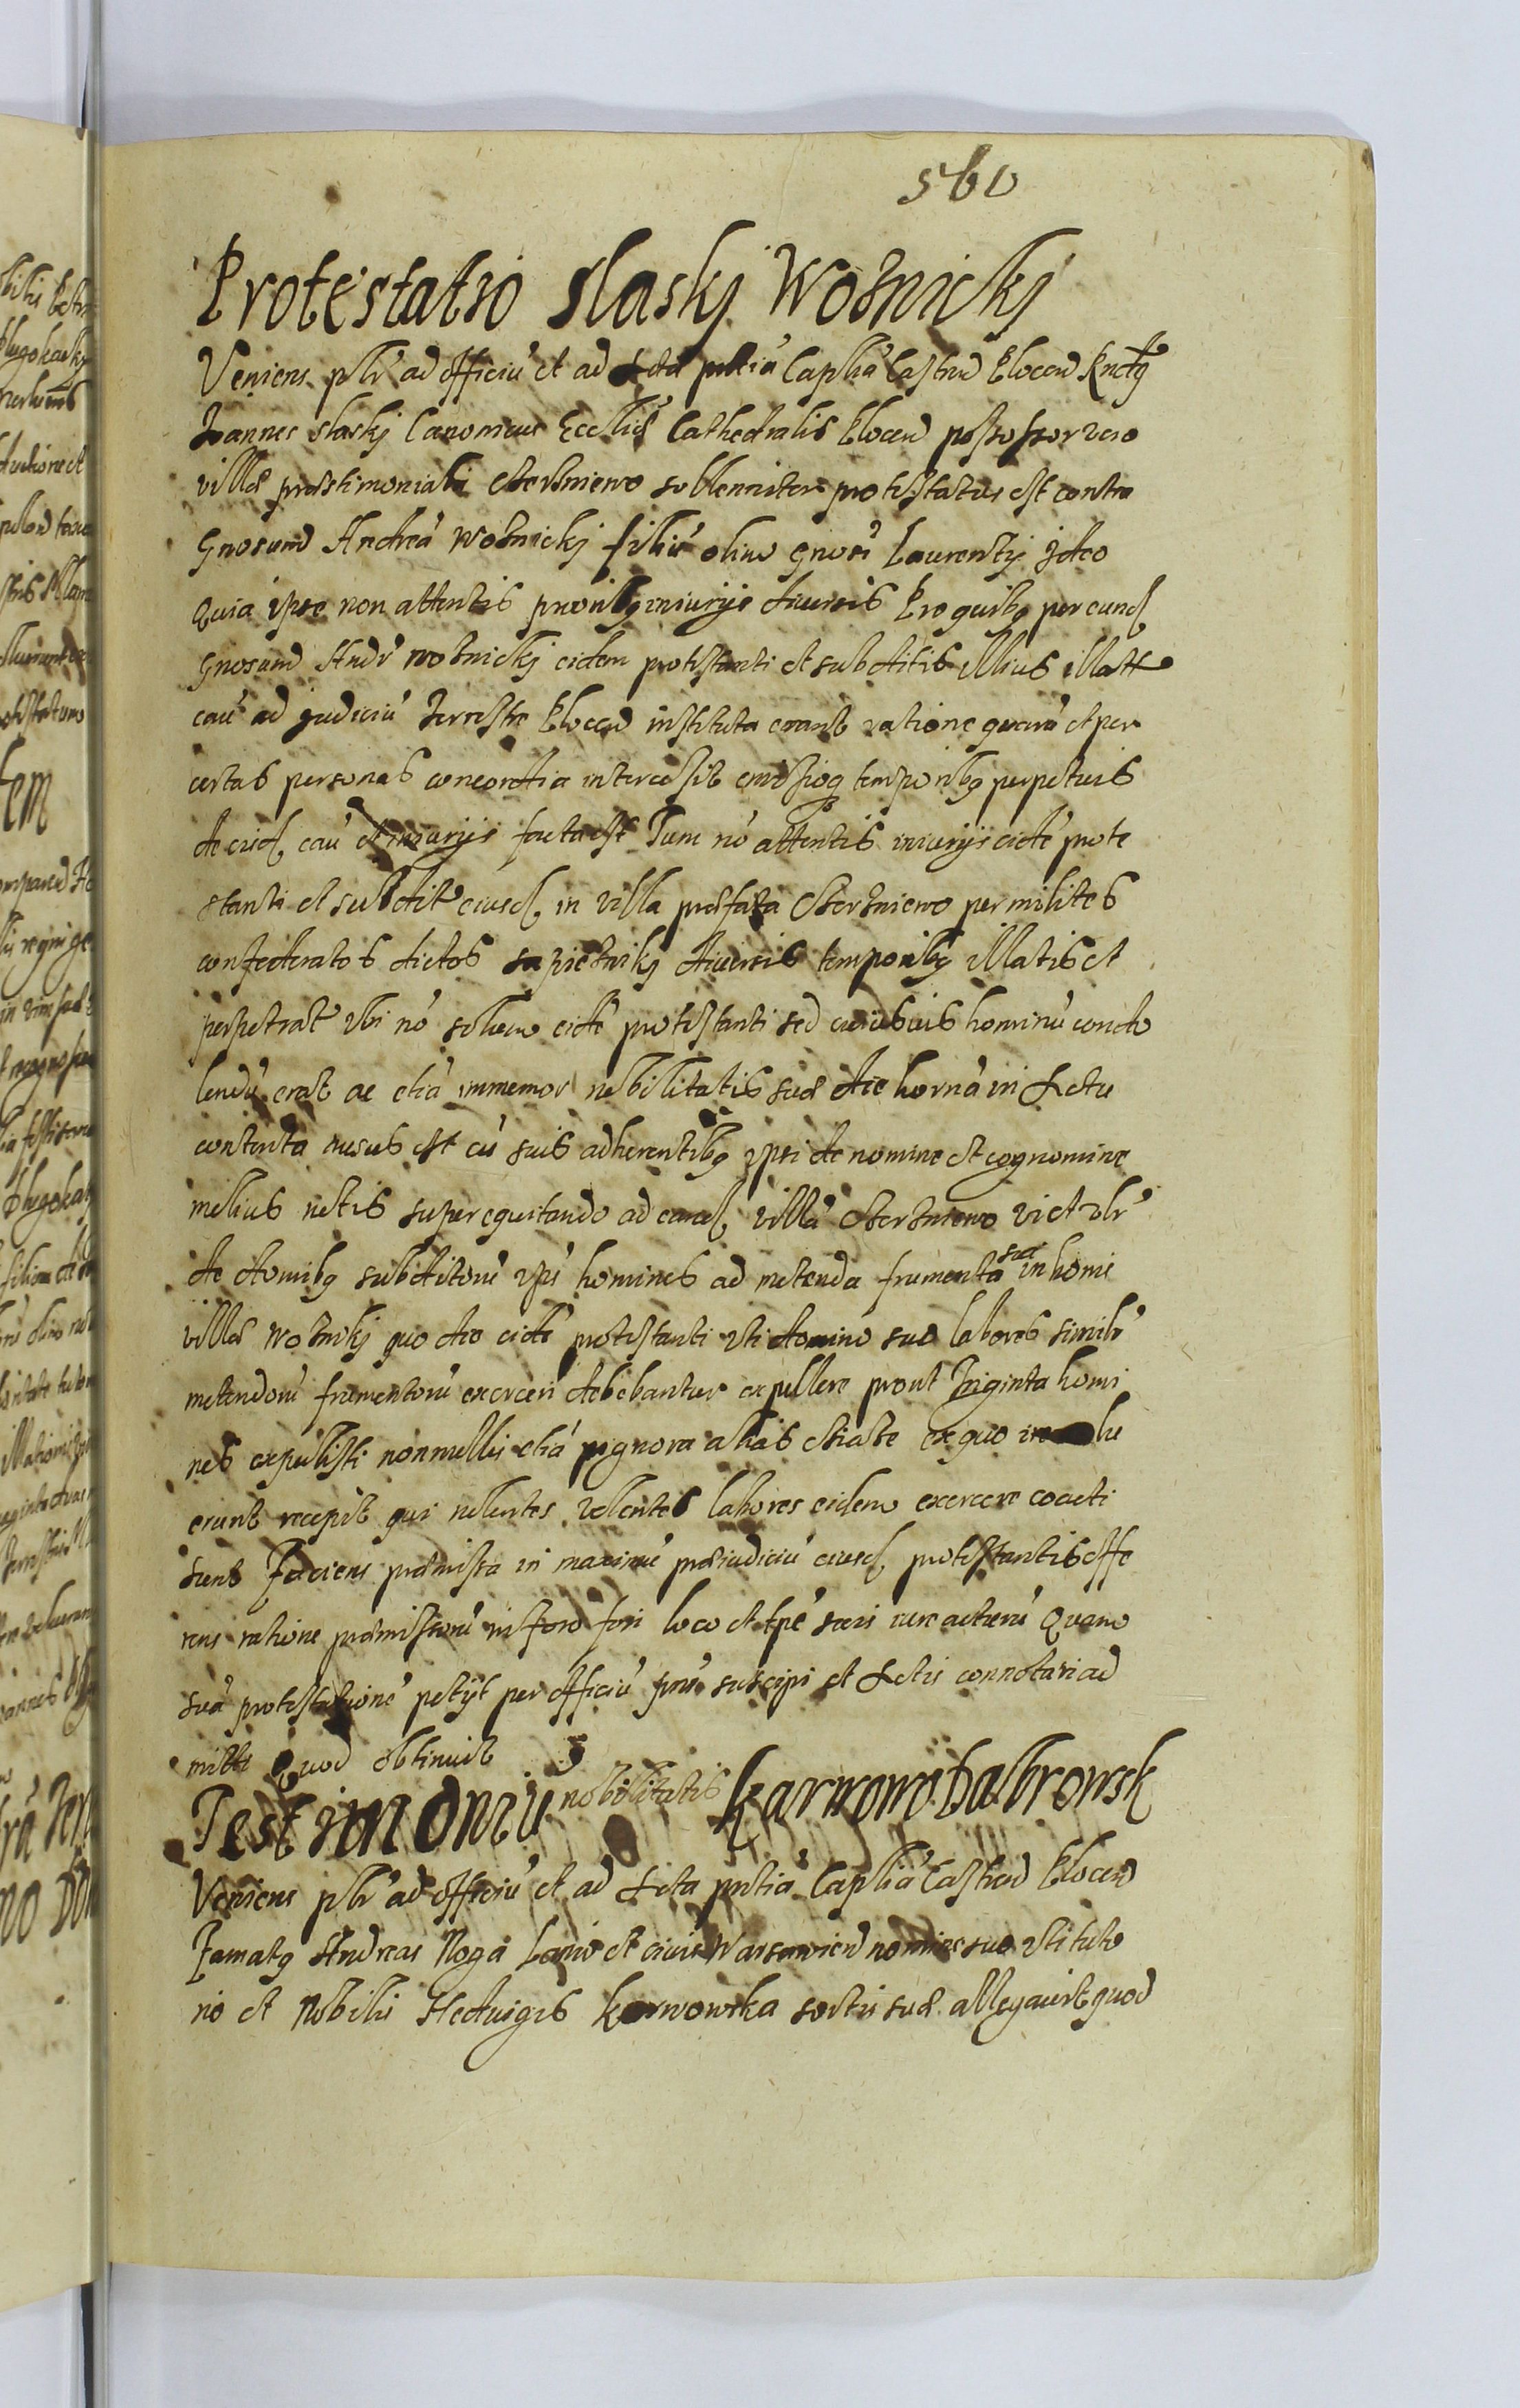 560
Protestatio Slaskj Woznickj
Veniens plr̃ ad officiũ et ad Acta p̃ntia Caplia Castreñ Plocen̄ Rndg
Joannes Slaskj Canonicus Eccliæ Cathedralis Plocen̄ possessor vero
villæ præstimonialis sollenniter protestatus est contra
Gnosum Andreã Woznickj filiũ olim Gnosi Laurentij Ideo
Quia ipse non attentis iniurijs diuersis Pro quibg per eund
Gnosum Andr̃ Woznickj eidem protestanti et subditis illius illatt
caũ ad Judiciũ Terrestre Plocen̄ instituta erant ratione quarũ et per
certas personas concordia intercessit temporibg perpetuis
de eisd caũ et iniurijs facta est Tum nõ attentis iniurijs eidẽ prote
stanti et subdit eiusd in villa præfata per milites
confederatos dictos sapiezinskj diuersis temporibg illatis et
perpetrat vbi nõ solum eidẽ protestanti sed cuiusuis hominũ condo
lendũ erat ac etiã immemor nobilitatis suæ die hornã in Actu
contenta ausus est cũ suis adherentibg ipsi de nomine et cognomine
melius notis superequitando ad eand villã vi et vlr̃
de domibg subditorũ ipsi homines ad metenda frumenta sua in homi
villæ Woznikj quo die eidẽ protestanti vti domino suo labores similr̃
metendorũ frumentorũ exerceri debebantur expellere prout Triginta homi
nes expulisti nonnullis etiã pignora alias ex quo
erunt recepit qui nolentes volentes labores eidem exercere coacti
sunt Faciens præmissa in maximũ præiudiciũ eiusd protestantis offe
rens ratione præmissorũ in foro fori loco et tpẽ sacri iure acturũ Quam
suã protestationẽ petijt per officiũ pns̃ suscipi et Actis connotari ad
mitti Quod obtinuit
Testimoniũ nobilitatis Karwowo Dalbrowsk
Veniens plr̃ ad officiũ et ad Acta p̃ntia Caplia Castren̄ Plocen̄
Famatg Andreas Noga Lanio et ciuis Warsauien̄ nomine suo vti tuto
rio et Nobilis Heduigis Karwowska sortis suæ allegauit quod